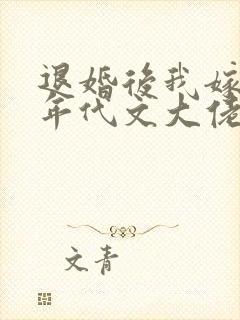 退婚後我嫁
年代文大佬
文青